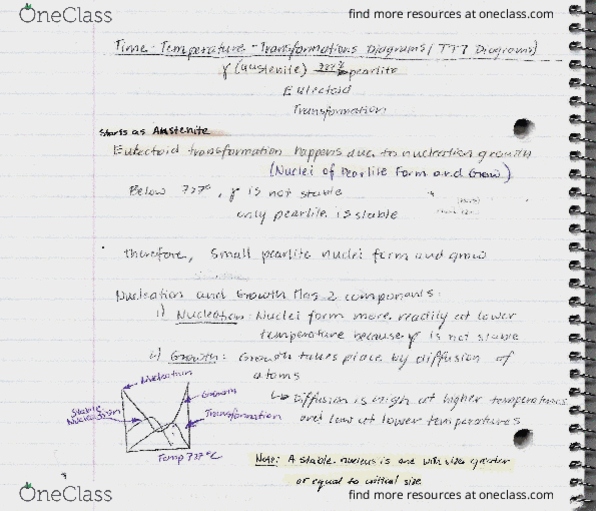 OneClass
find more resources at oneclass.com
Time-Temperature-Transformations Diagrams (TTT Diagrams)
γ (austenite) 727° pearlite
Eutectoid
Transformation
Starts as Austenite
Eutectoid transformation happens due to nucleation growth
(Nuclei of Pearlite Form and Grow)
Below 727°, γ is not stable
only pearlite is stable
therefore, small pearlite nuclei form and grow
Nucleation and Growth Has 2 components:
i) Nucleation: Nuclei form more readily at lower
temperature because γ is not stable
ii) Growth: Growth takes place by diffusion of
atoms
↳ Diffusion is high at higher temperatures
and low at lower temperatures
Nucleation
Growth
Stable
Nucleation
Transformation
Temp 727°C
Note: A stable nucleus is one with size greater
or equal to critical size
OneClass
find more resources at oneclass.com